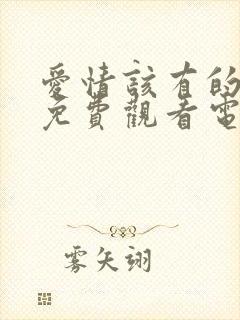 愛情該有的
免費觀看電
雾矢翊